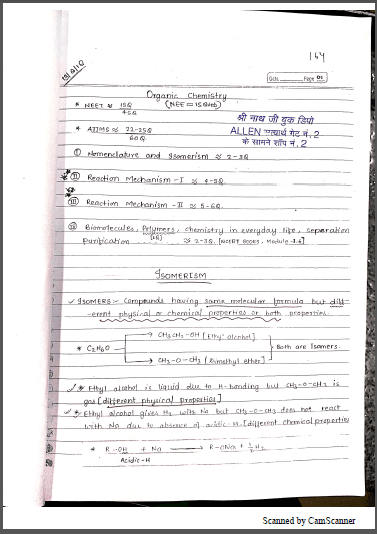 164
Date Page 01
Organic Chemistry
(NEET ≈ 15Qsts)
* NEET ≈ 15Q/45Q
श्री नाथ जी बुक डिपो
* AIIMS ≈ 22-25Q/60Q
ALLEN सत्यार्थ गेट नं. 2
के सामने शॉप नं. 2
① Nomenclature and Isomerism ≈ 2-3Q
② Reaction Mechanism-I ≈ 4-5Q
③ Reaction Mechanism-II ≈ 5-6Q.
④ Biomolecules, Polymers, chemistry in everyday life, separation
Purification ≈ 2-3Q. [NCERT BOOKS, Module-1.6]
(1Q)
ISOMERISM
✓ ISOMERS:- Compounds having same molecular formula but diff-
-erent physical or chemical properties or both properties.
→ CH₃CH₂-OH [Ethyl alcohol]
* C₂H₆O } Both are Isomers.
→ CH₃-O-CH₃ [Dimethyl ether]
* Ethyl alcohol is liquid due to H-bonding but CH₃-O-CH₃ is
gas [different physical properties]
* Ethyl alcohol gives H₂ with Na but CH₃-O-CH₃ does not react
with Na due to absence of acidic-H. [different chemical properties
* R-OH + Na → R-ONa + ½H₂
Acidic-H
Scanned by CamScanner